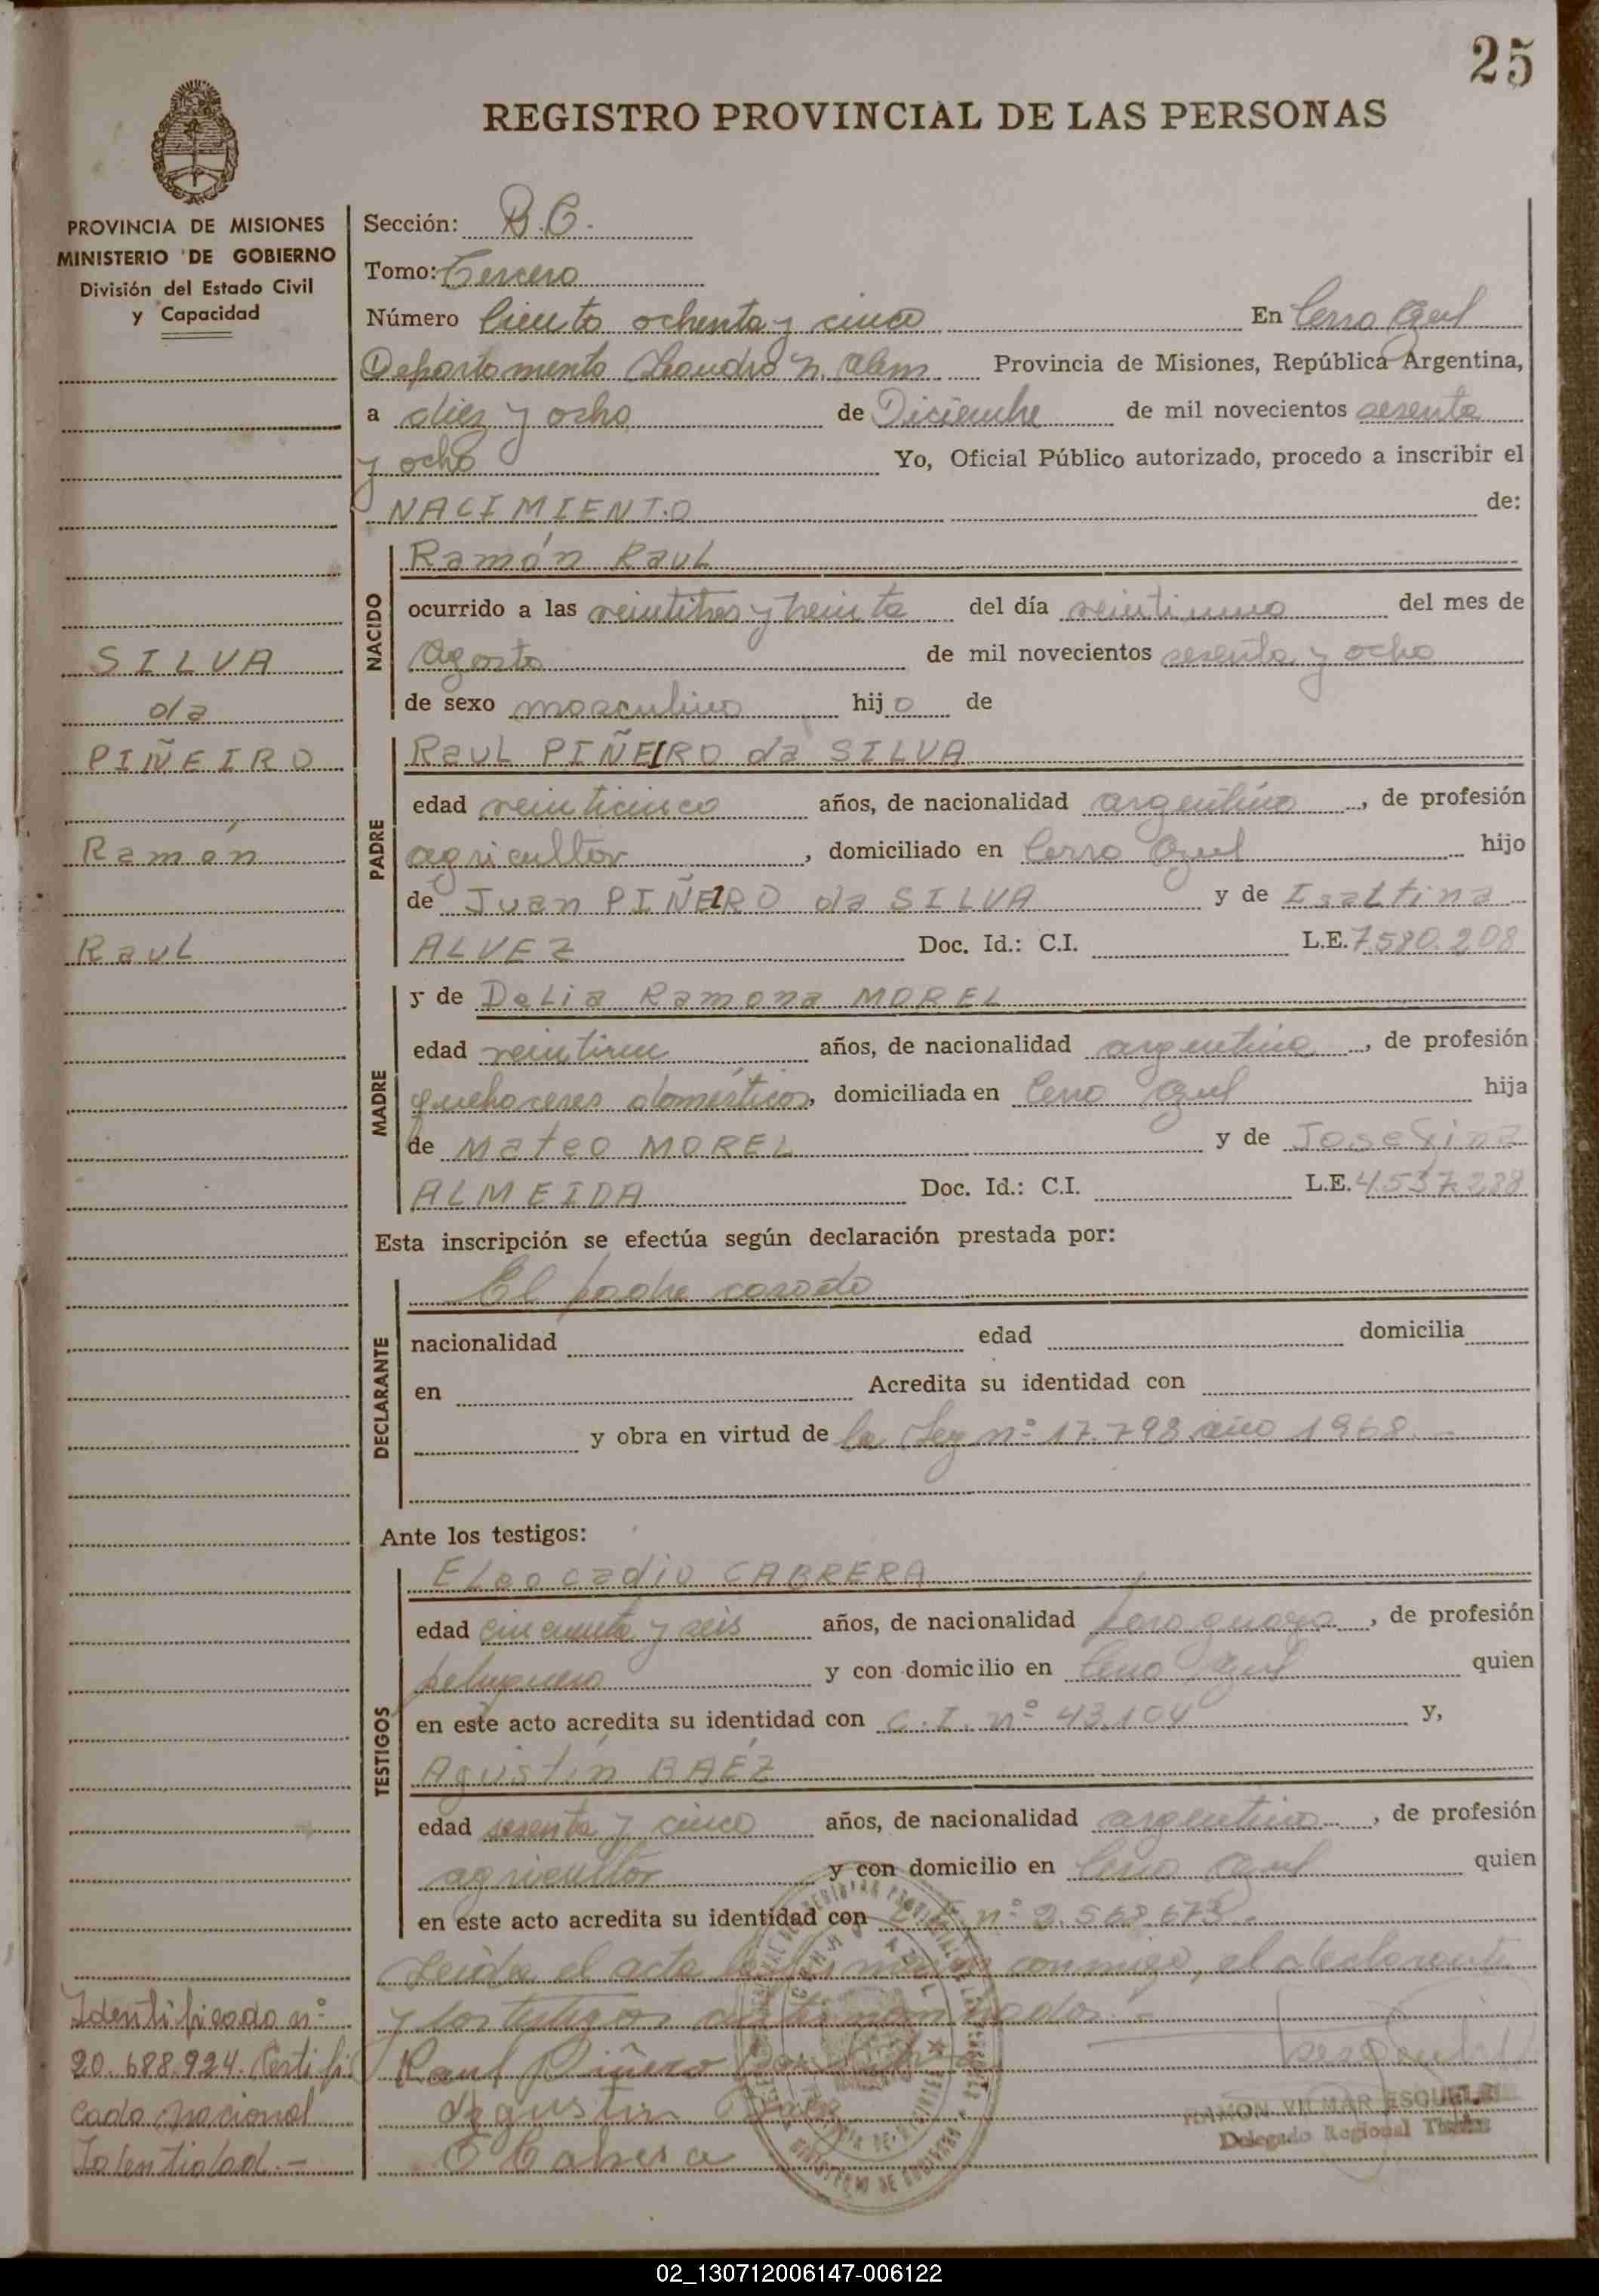 25
REGISTRO PROVINCIAL DE LAS PERSONAS
PROVINCIA DE MISIONES
MINISTERIO DE GOBIERNO
División del Estado Civil
y Capacidad
Sección: B.C.
Tomo: Tercero
Número Ciento ochenta y cinco En Cerro Azul
Departamento Leandro N. Alem Provincia de Misiones, República Argentina,
a diez y ocho de Diciembre de mil novecientos sesenta
y ocho Yo, Oficial Público autorizado, procedo a inscribir el
NACIMIENTO de:
NACIDO
Ramón Raul
ocurrido a las veintitres y treinta del día veintinueve del mes de
Agosto de mil novecientos sesenta y ocho
de sexo masculino hijo de
SILVA
da
PIÑEIRO
Ramón
Raul
PADRE
Raul PIÑEIRO da SILVA
edad veinticinco años, de nacionalidad argentina, de profesión
agricultor, domiciliado en Cerro Azul hijo
de Juan PIÑEIRO da SILVA y de Isaltina
ALVEZ Doc. Id.: C.I. L.E. 7.580.208
MADRE
y de Delia Ramona MOREL
edad veintiun años, de nacionalidad argentina, de profesión
quehaceres domésticos, domiciliada en Cerro Azul hija
de Mateo MOREL y de Josefina
ALMEIDA Doc. Id.: C.I. L.E. 4.537.288
Esta inscripción se efectúa según declaración prestada por:
DECLARANTE
El padre casado
nacionalidad edad domicilia
en Acredita su identidad con
y obra en virtud de la Ley nº 17.798 año 1968.-
Ante los testigos:
TESTIGOS
Eleocadio CABRERA
edad cincuenta y seis años, de nacionalidad paraguaya, de profesión
peluquero y con domicilio en Cerro Azul quien
en este acto acredita su identidad con C.I. nº 43.104 y,
Agustín BAÉZ
edad sesenta y cinco años, de nacionalidad argentina, de profesión
agricultor y con domicilio en Cerro Azul quien
en este acto acredita su identidad con nº 2.568.673.-
Leida el acta conmigo, el declarante
y los testigos nombrados.-
Raul Piñero Da Silva
Agustin Baez
E Cabrera
RAMON VILMAR ESQUEL
Delegado Regional Titular
Identificado nº
20.688.924. Certifi
cado Nacional
Identidad.-
02_130712006147-006122